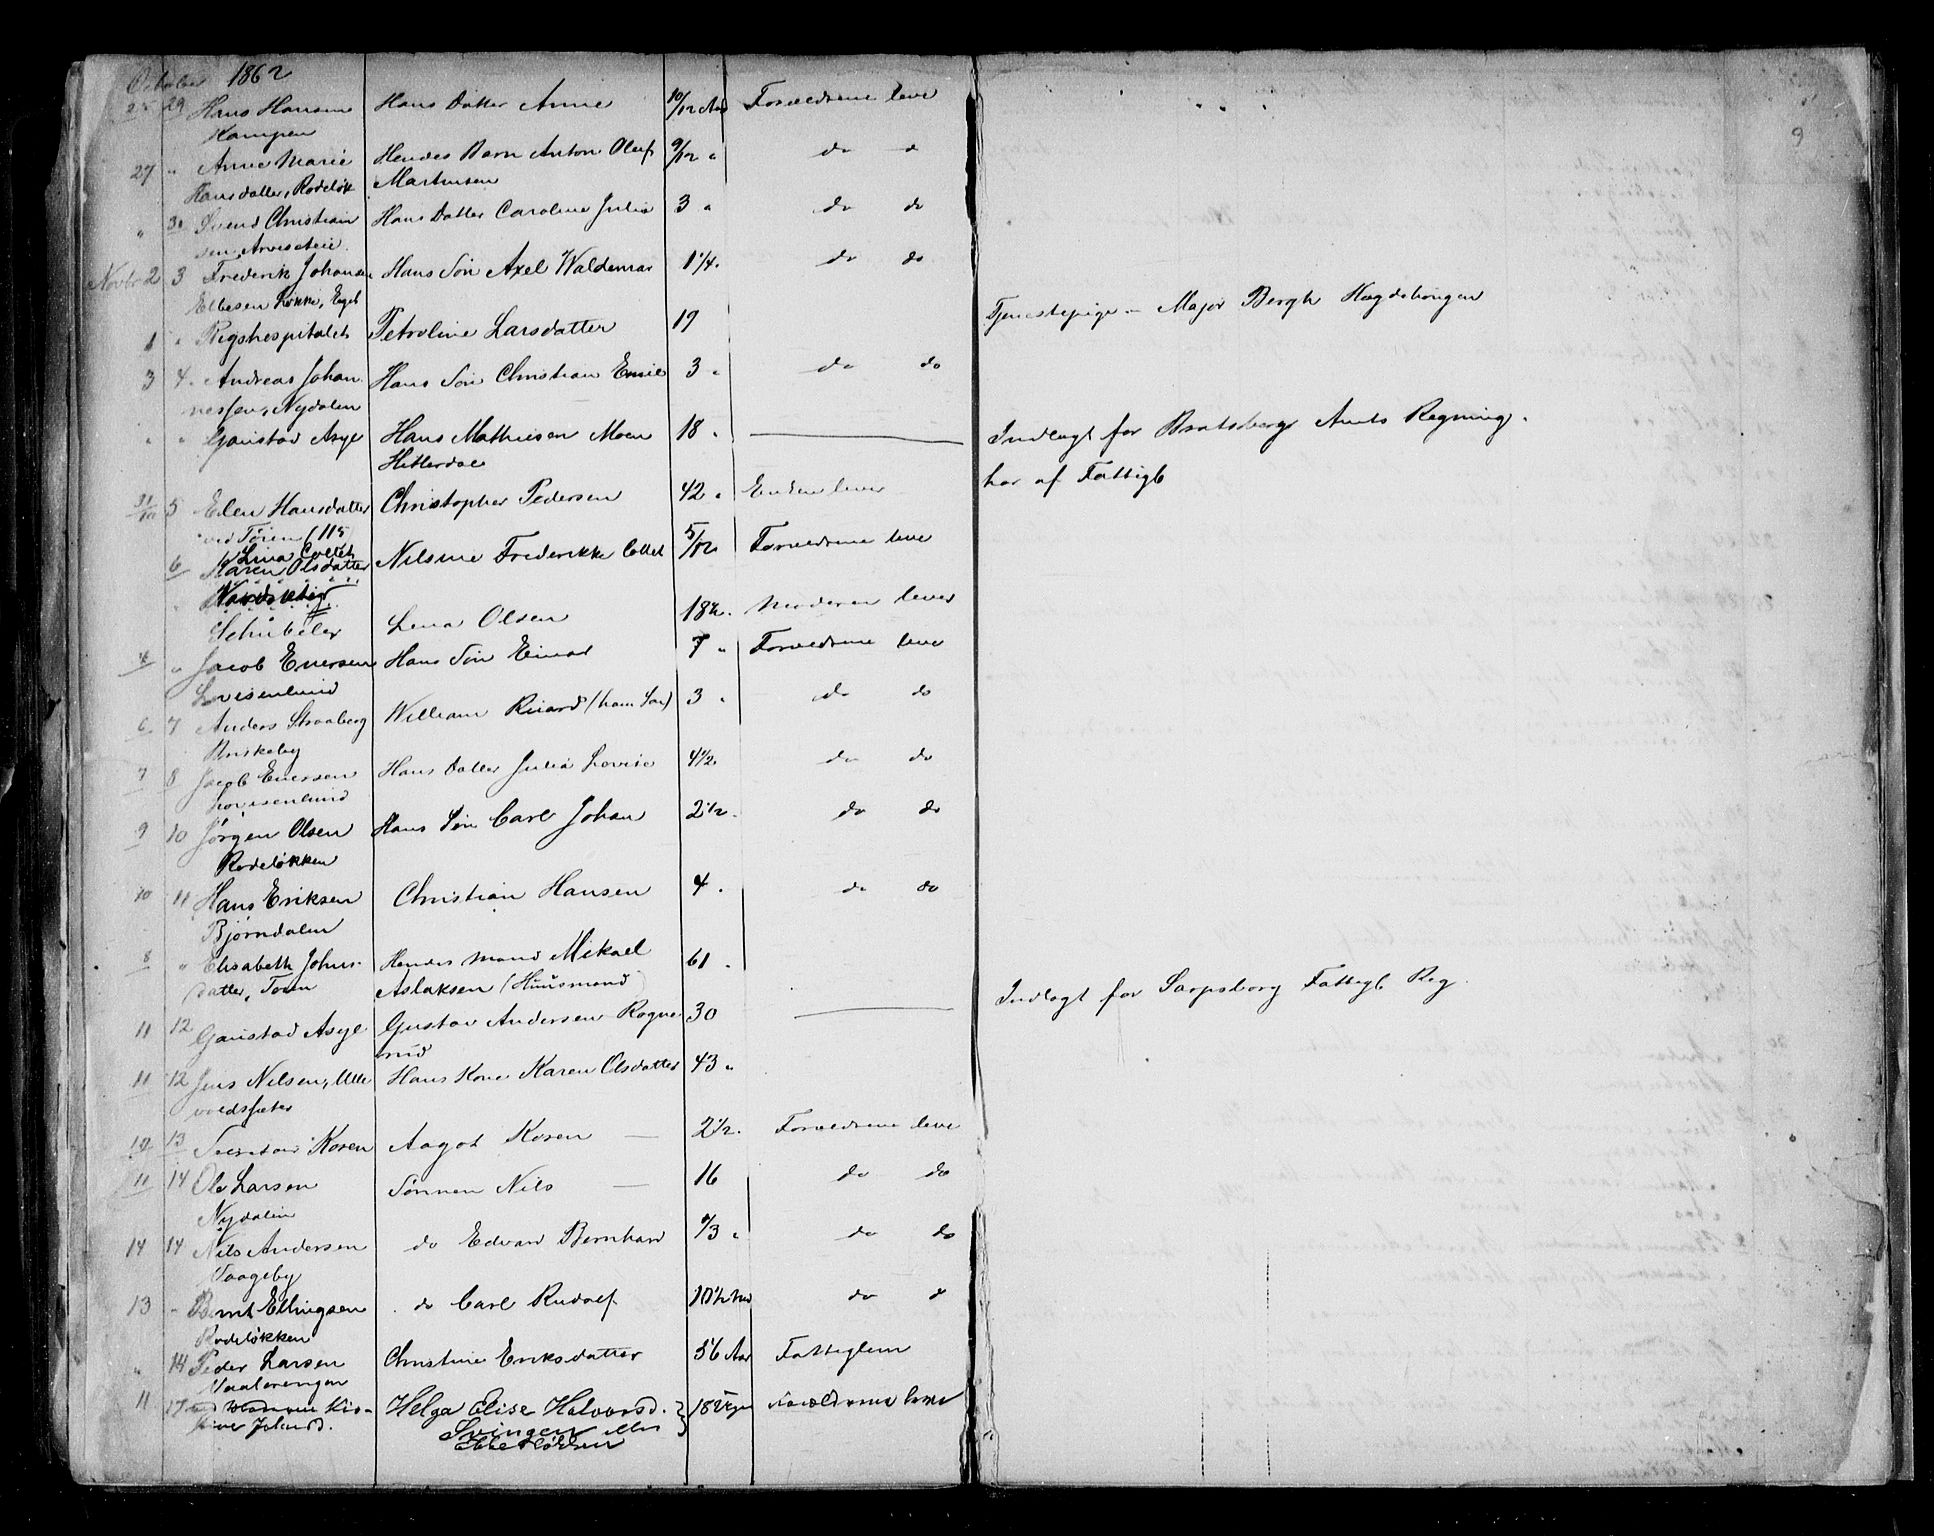 October 1862
25 29 Hans Hansen Hans Datter Anne 10/12 Aar Forældrene leve
Kampen
27 " Anne Marie Hendes Barn Anton Oluf 9/12 " do do
Hansdatter, Rodeløk Martinsen
" 30 Svend Christian Hans Datter Caroline Julie 3 " do do
sen
Novbr 2 3 Frederik Johansen Hans Søn Axel Waldemar 1 1/4 " do do
Ebbesen Løkke, Engeb
1 " Rigshospitalet Petroline Larsdatter 19 Tjenestepige Major Bergh
3 4 Andreas Johan Hans Søn Christian Emil 3 " do do
nessen, Nydalen
" " Gaustad Asyl Hans Mathiesen Moen 18 " Indlagt for Bratsberg Amts Regning
Hitterdal har af Fattigb
31/10 5 Elen Hansdatter Christopher Pedersen 42 " Enken lever
ved Tøien (115
6 Lina Collett Nilsine Frederikke Collet 5/12 Forældrene leve
Karen Olsdatter
Schübeler Lena Olsen 18 1/2 " Moderen lever
4 " Jacob Evensen Hans Søn Einar 7 " Forældrene leve
Lovisenlund
6 7 Anders Straaberg William Ricard (hans Søn) 3 " do do
Briskeby
7 8 Jacob Evensen Hans Datter Julia Lovise 4 1/2 do do
Lovisenlund
9 10 Jørgen Olsen Hans Søn Carl Johan 2 1/2 " do do
Rodeløkken
10 11 Hans Eriksen Christian Hansen 4 " do do
Bjørndalen
8 " Elisabeth Johns- Hendes Mand Mikael 61 "
datter, Toien Aslaksen (Huusmand)
11 12 Gaustad Asyl Gustav Andersen Rogne 30 Indlagt for Sarpsborg Fattigb Reg
rud
11 12 Jens Nilsen, Ulle Hans Kone Karen Olsdatter 43 "
voldsæter
12 13 Koren Aagot Koren 2 1/2 " Forældrene leve
11 14 Ole Larsen Sønnen Nils 16 do do
Nydalen
14 14 Nils Andersen do Edvard Bernhard 9/3 " do do
Vaageby
13 " Bernt Ellingsen do Carl Rudolf 10 1/2 do do
Rodeløkken
" 14 Peder Larsen Christine Eriksdatter 56 Aar Fattiglem
Vaalerengen
11 17 Helga Elise Halvorsd. 18 Uger Forældrene leve
Svingen eller
Ebbeløkken